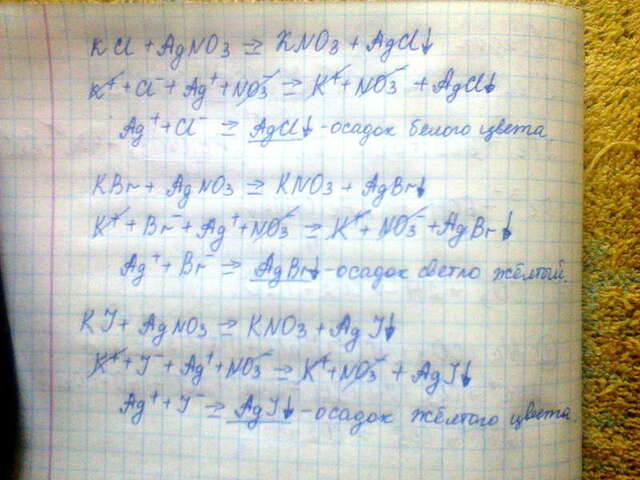 KCl + AgNO3 ⇄ KNO3 + AgCl↓
K⁺ + Cl⁻ + Ag⁺ + NO3⁻ ⇄ K⁺ + NO3⁻ + AgCl↓
Ag⁺ + Cl⁻ ⇄ AgCl↓ - осадок белого цвета.
KBr + AgNO3 ⇄ KNO3 + AgBr↓
K⁺ + Br⁻ + Ag⁺ + NO3⁻ ⇄ K⁺ + NO3⁻ + AgBr↓
Ag⁺ + Br⁻ ⇄ AgBr↓ - осадок светло жёлтый.
KI + AgNO3 ⇄ KNO3 + AgI↓
K⁺ + I⁻ + Ag⁺ + NO3⁻ ⇄ K⁺ + NO3⁻ + AgI↓
Ag⁺ + I⁻ ⇄ AgI↓ - осадок жёлтого цвета.